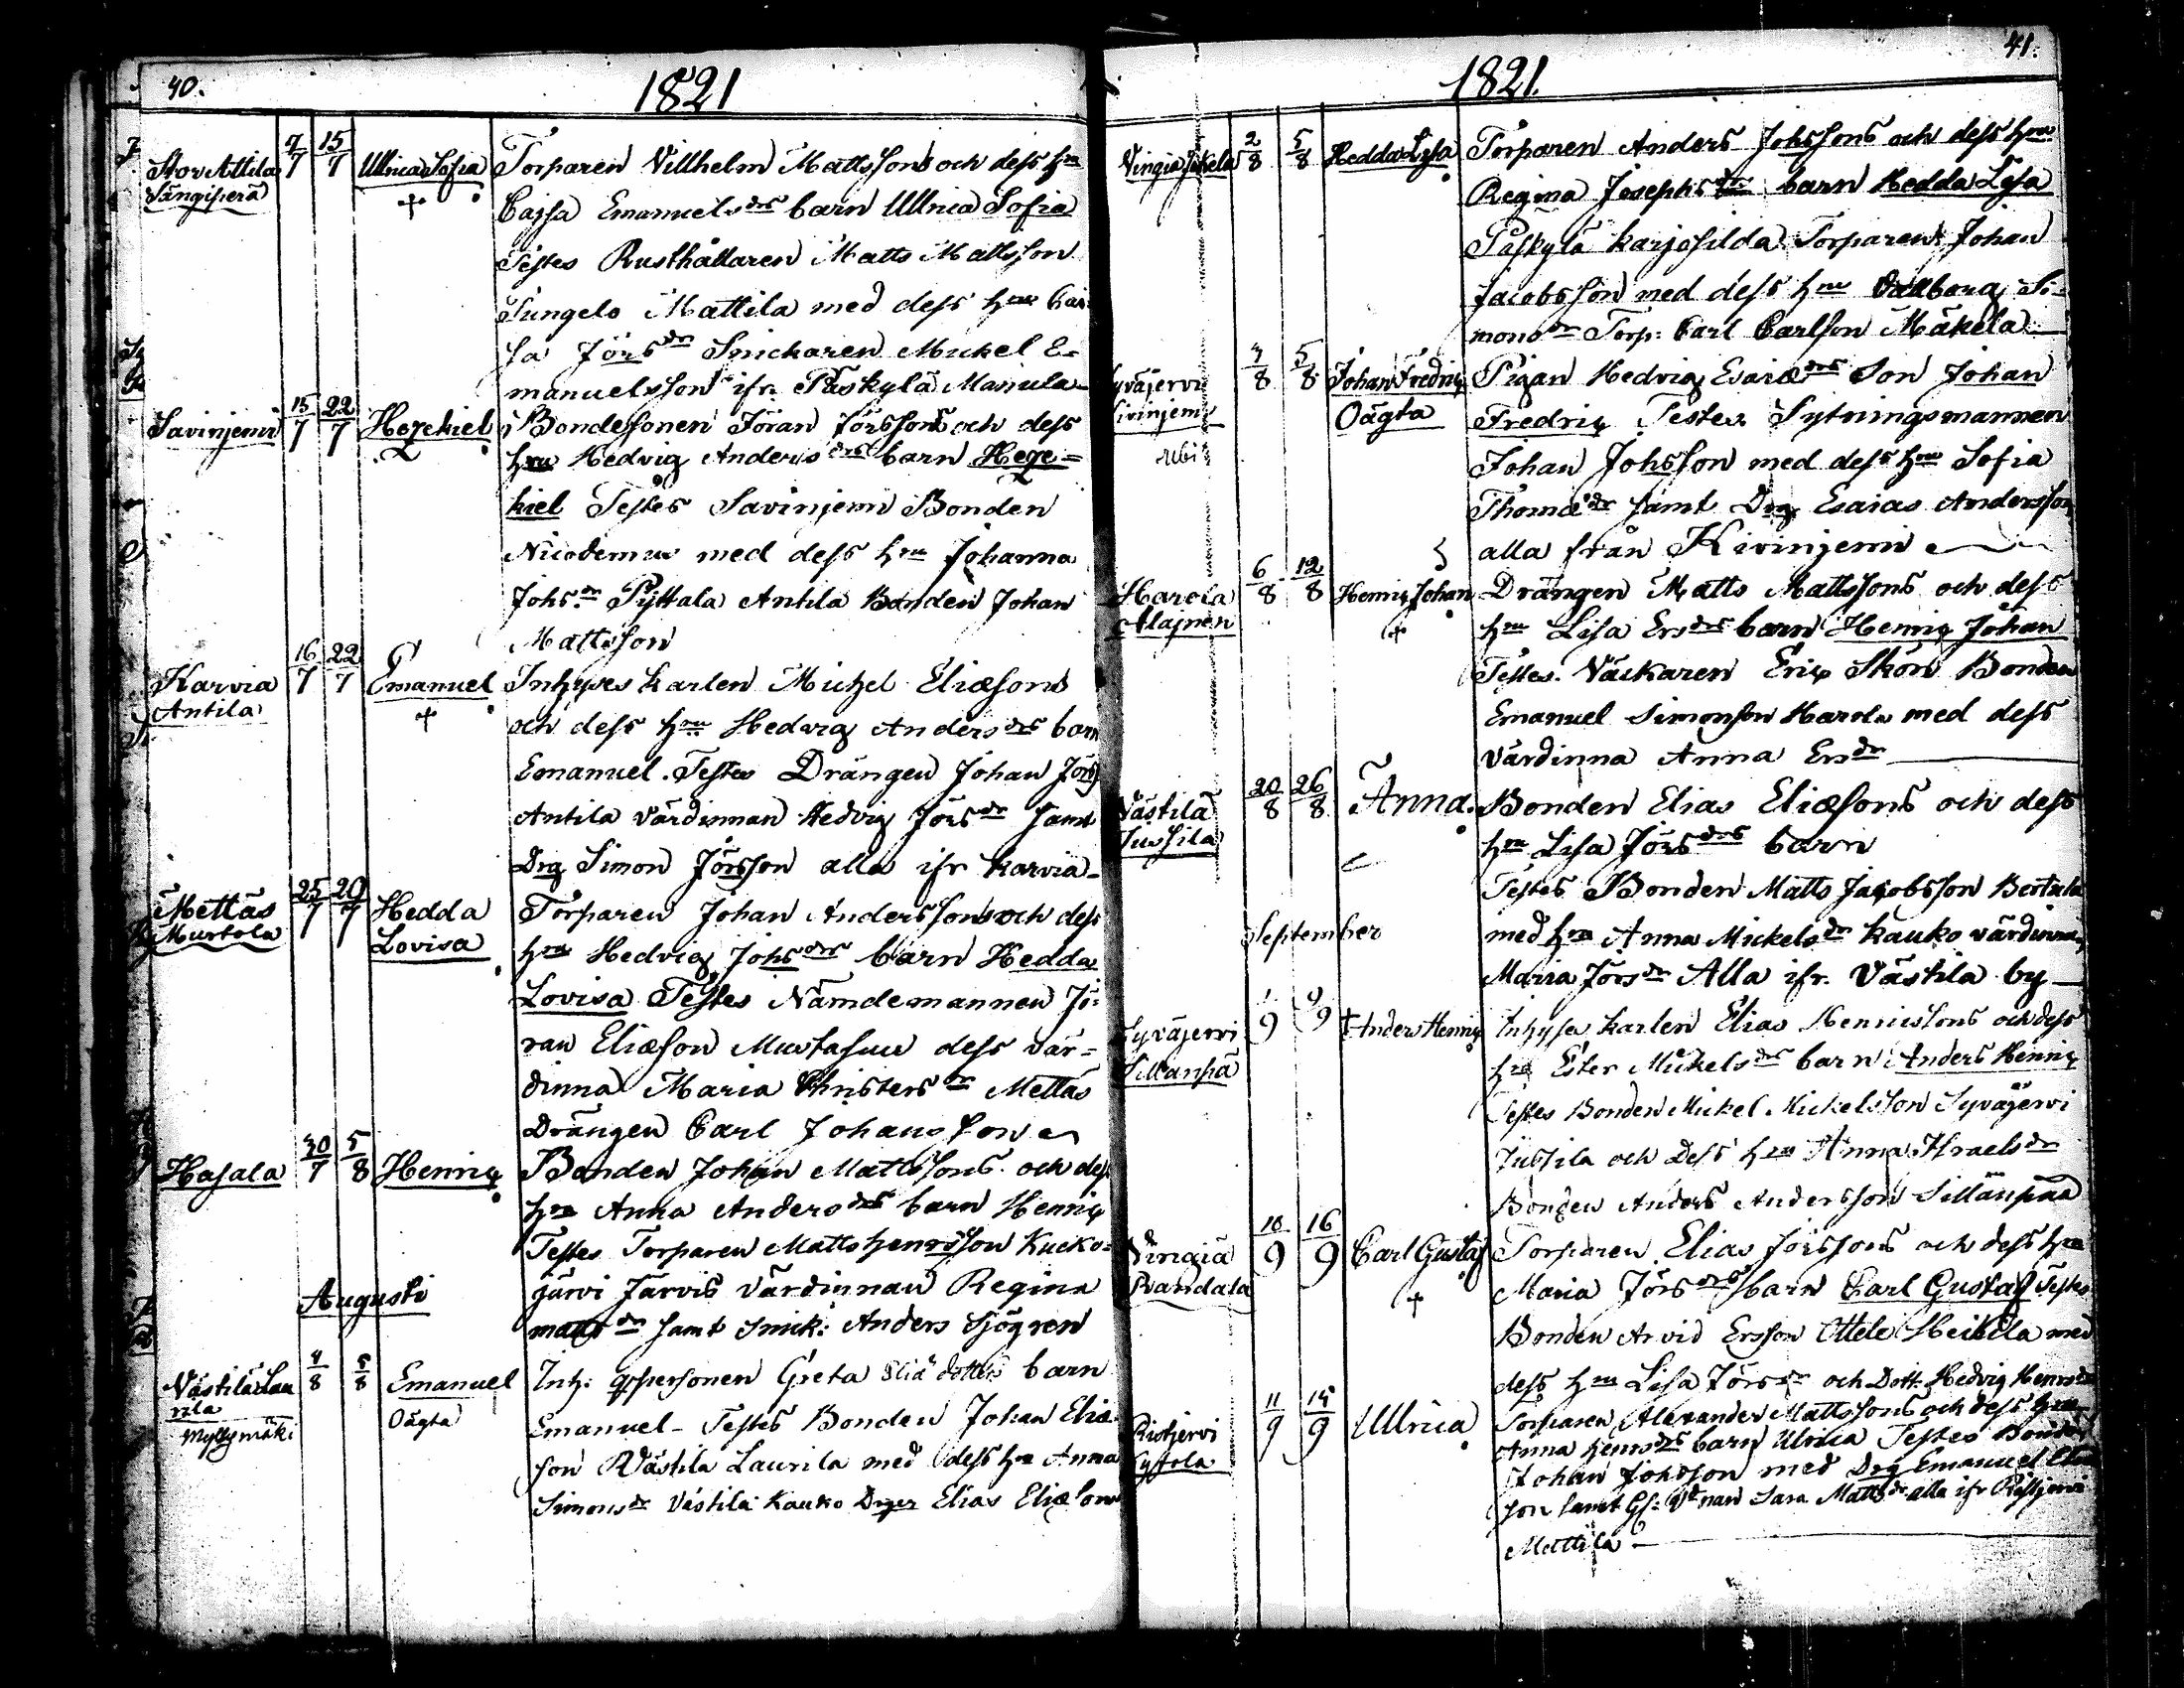 40.
1821
Stor Attila 7/7 15/7 Ullrica Sofia Torparen Villhelm Mattssons och dess hru
Sängiperä Cajsa Emanuelsdrs barn Ullrica Sofia
Testes Rusthållaren Matts Mattsson
Sungelo Mattila med dess hru Caj
sa Jörsdr Snickaren Mickel E-
manuelsson ifr. Påskylä Mansula
Savinjemi 15/7 22/7 Hezekiel Bondesonen Jöran Jörssons och dess
hru Hedvig Andersdrs barn Heze=
kiel Testes Savinjemi Bonden
Nicodemus med dess hru Johanna
Johs.dr Pyttala Antila Bonden Johan
Mattsson
Karvia 16/7 22/7 Emanuel Inhyses karlen Michel Eliæsons
Antila och dess hru Hedvig Andersdrs barn
Emanuel. Testes Drängen Johan Jörss
Antila värdinnan Hedvig Jörsdr samt
Drg Simon Jörsson alla ifr Karvia
Mettäs 25/7 29/7 Hedda Torparen Johan Anderssons och dess
Murtola Lovisa hru Hedvig Johsdrs barn Hedda
Lovisa Testes Nämdemannen Jö-
ran Eliæson Mustasuu dess vär=
dinna Maria Christersdr Mettäs
Drängen Carl Johansson
Hasala 30/7 5/8 Henriq Bonden Johan Mattssons och dess
hru Anna Andersdrs barn Henriq
Testes Torparen Matts Henrsson Kucko=
järvi Järvis värdinnan Regina
Mattsdr samt Snick: Anders Sjögren
Augusti
Västilä Lau 4/8 5/8 Emanuel Inh: qspersonen Greta Eliæ dotters barn
rila Oägta Emanuel - Testes Bonden Johan Eliæ
Myllymäki son Västila Laurila med dess hru Anna
Simonsdr Västila Kauko Drgr Elias Eliæson
41.
1821.
Vingiä Jokela 2/8 5/8 Hedda Lisa Torparen Anders Johssons och dess hru
Regina Josephsdrs barn Hedda Lisa
Påskylä Karjosilda Torparen Johan
Jacobsson med dess hru Valborg Si-
monsdr Torp: Carl Carlson Mäkelä
Syväjervi 4/8 5/8 Johan Fredriq Pigan Hedvig Esaiædrs Son Johan
Kivinjemi Oägta Fredriq Testes Sytningsmannen
Johan Johsson med dess hru Sofia
Thomædr samt Drg Esaias Andersson
alla från Kivinjemi
Harola 6/8 12/8 Henriq Johan Drängen Matts Mattssons och dess
Alajnen hru Lisa Ersdrs barn Henriq Johan
Testes. Väckaren Eriq Skön Bonden
Emanuel Simonson Harola med dess
Värdinna Anna Ersdr
Västilä 20/8 26/8 Anna. Bonden Elias Eliæsons och dess
Jussila hru Lisa Jörsdrs barn
Testes Bonden Matts Jacobsson
med hru Anna Mickelsdr Kauko värdinna
Maria Jörsdr Alla ifr. Västila by
September
Syväjervi 1/9 9/9 Anders Henriq Inhyses karlen Elias Henricsons och dess
Sillanpä hru Ester Mickelsdrs barn Anders Henriq
Testes Bonden Mickel Mickelsson Syväjervi
Jussila och dess hru Anna Israelsdr
Bonden Anders Andersson Sillänpää
Vingiä 10/9 16/9 Carl Gustaf Torparen Elias Jörssons och dess hru
Randala Maria Jörsdrs barn Carl Gustaf Testes
Bonden Arvid Ersson Ottele Heikkila med
dess hru Lisa Jörsdr och Dott: Hedvig Henrsdr
Ristjervi 11/9 15/9 Ullrica Torparen Alexander Mattssons och dess hru
Anna Henrsdrs barn Ulrica Testes Bonden
Johan Johsson med Drg Emanuel
son samt Gs: Vdnan Sara Mattsdr alla ifr Ristjervi
Mattila